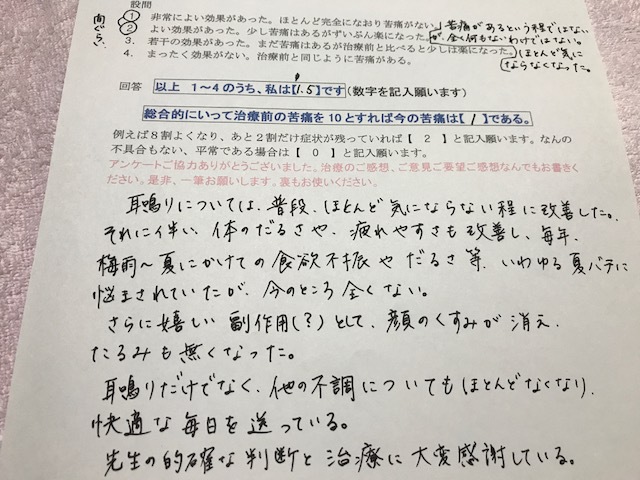 設問
間ぐらい
1. 非常によい効果があった。ほとんど完全になおり苦痛がない。
2. よい効果があった。少し苦痛はあるがずいぶん楽になった。
3. 若干の効果があった。まだ苦痛はあるが治療前と比べると少しは楽になった。
4. まったく効果がない。治療前と同じように苦痛がある。
苦痛があるという程ではない
が、全く何もないわけではない。
ほとんど気に
ならなくなった。
回答 以上 1～4のうち、私は【1.5】です (数字を記入願います)
総合的にいって治療前の苦痛を10とすれば今の苦痛は【1】である。
例えば8割よくなり、あと2割だけ症状が残っていれば【 2 】と記入願います。なんの
不具合もない、平常である場合は【 0 】と記入願います。
アンケートご協力ありがとうございました。治療のご感想、ご意見ご要望ご感想なんでもお書きく
ださい。是非、一筆お願いします。裏もお使いください。
耳鳴りについては、普段、ほとんど気にならない程に改善した。
それに伴い、体のだるさや、疲れやすさも改善し、毎年、
梅雨～夏にかけての食欲不振やだるさ等、いわゆる夏バテに
悩まされていたが、今のところ全くない。
さらに嬉しい副作用(?)として、顔のくすみが消え、
たるみも無くなった。
耳鳴りだけでなく、他の不調についてもほとんどなくなり、
快適な毎日を送っている。
先生の的確な判断と治療に大変感謝している。